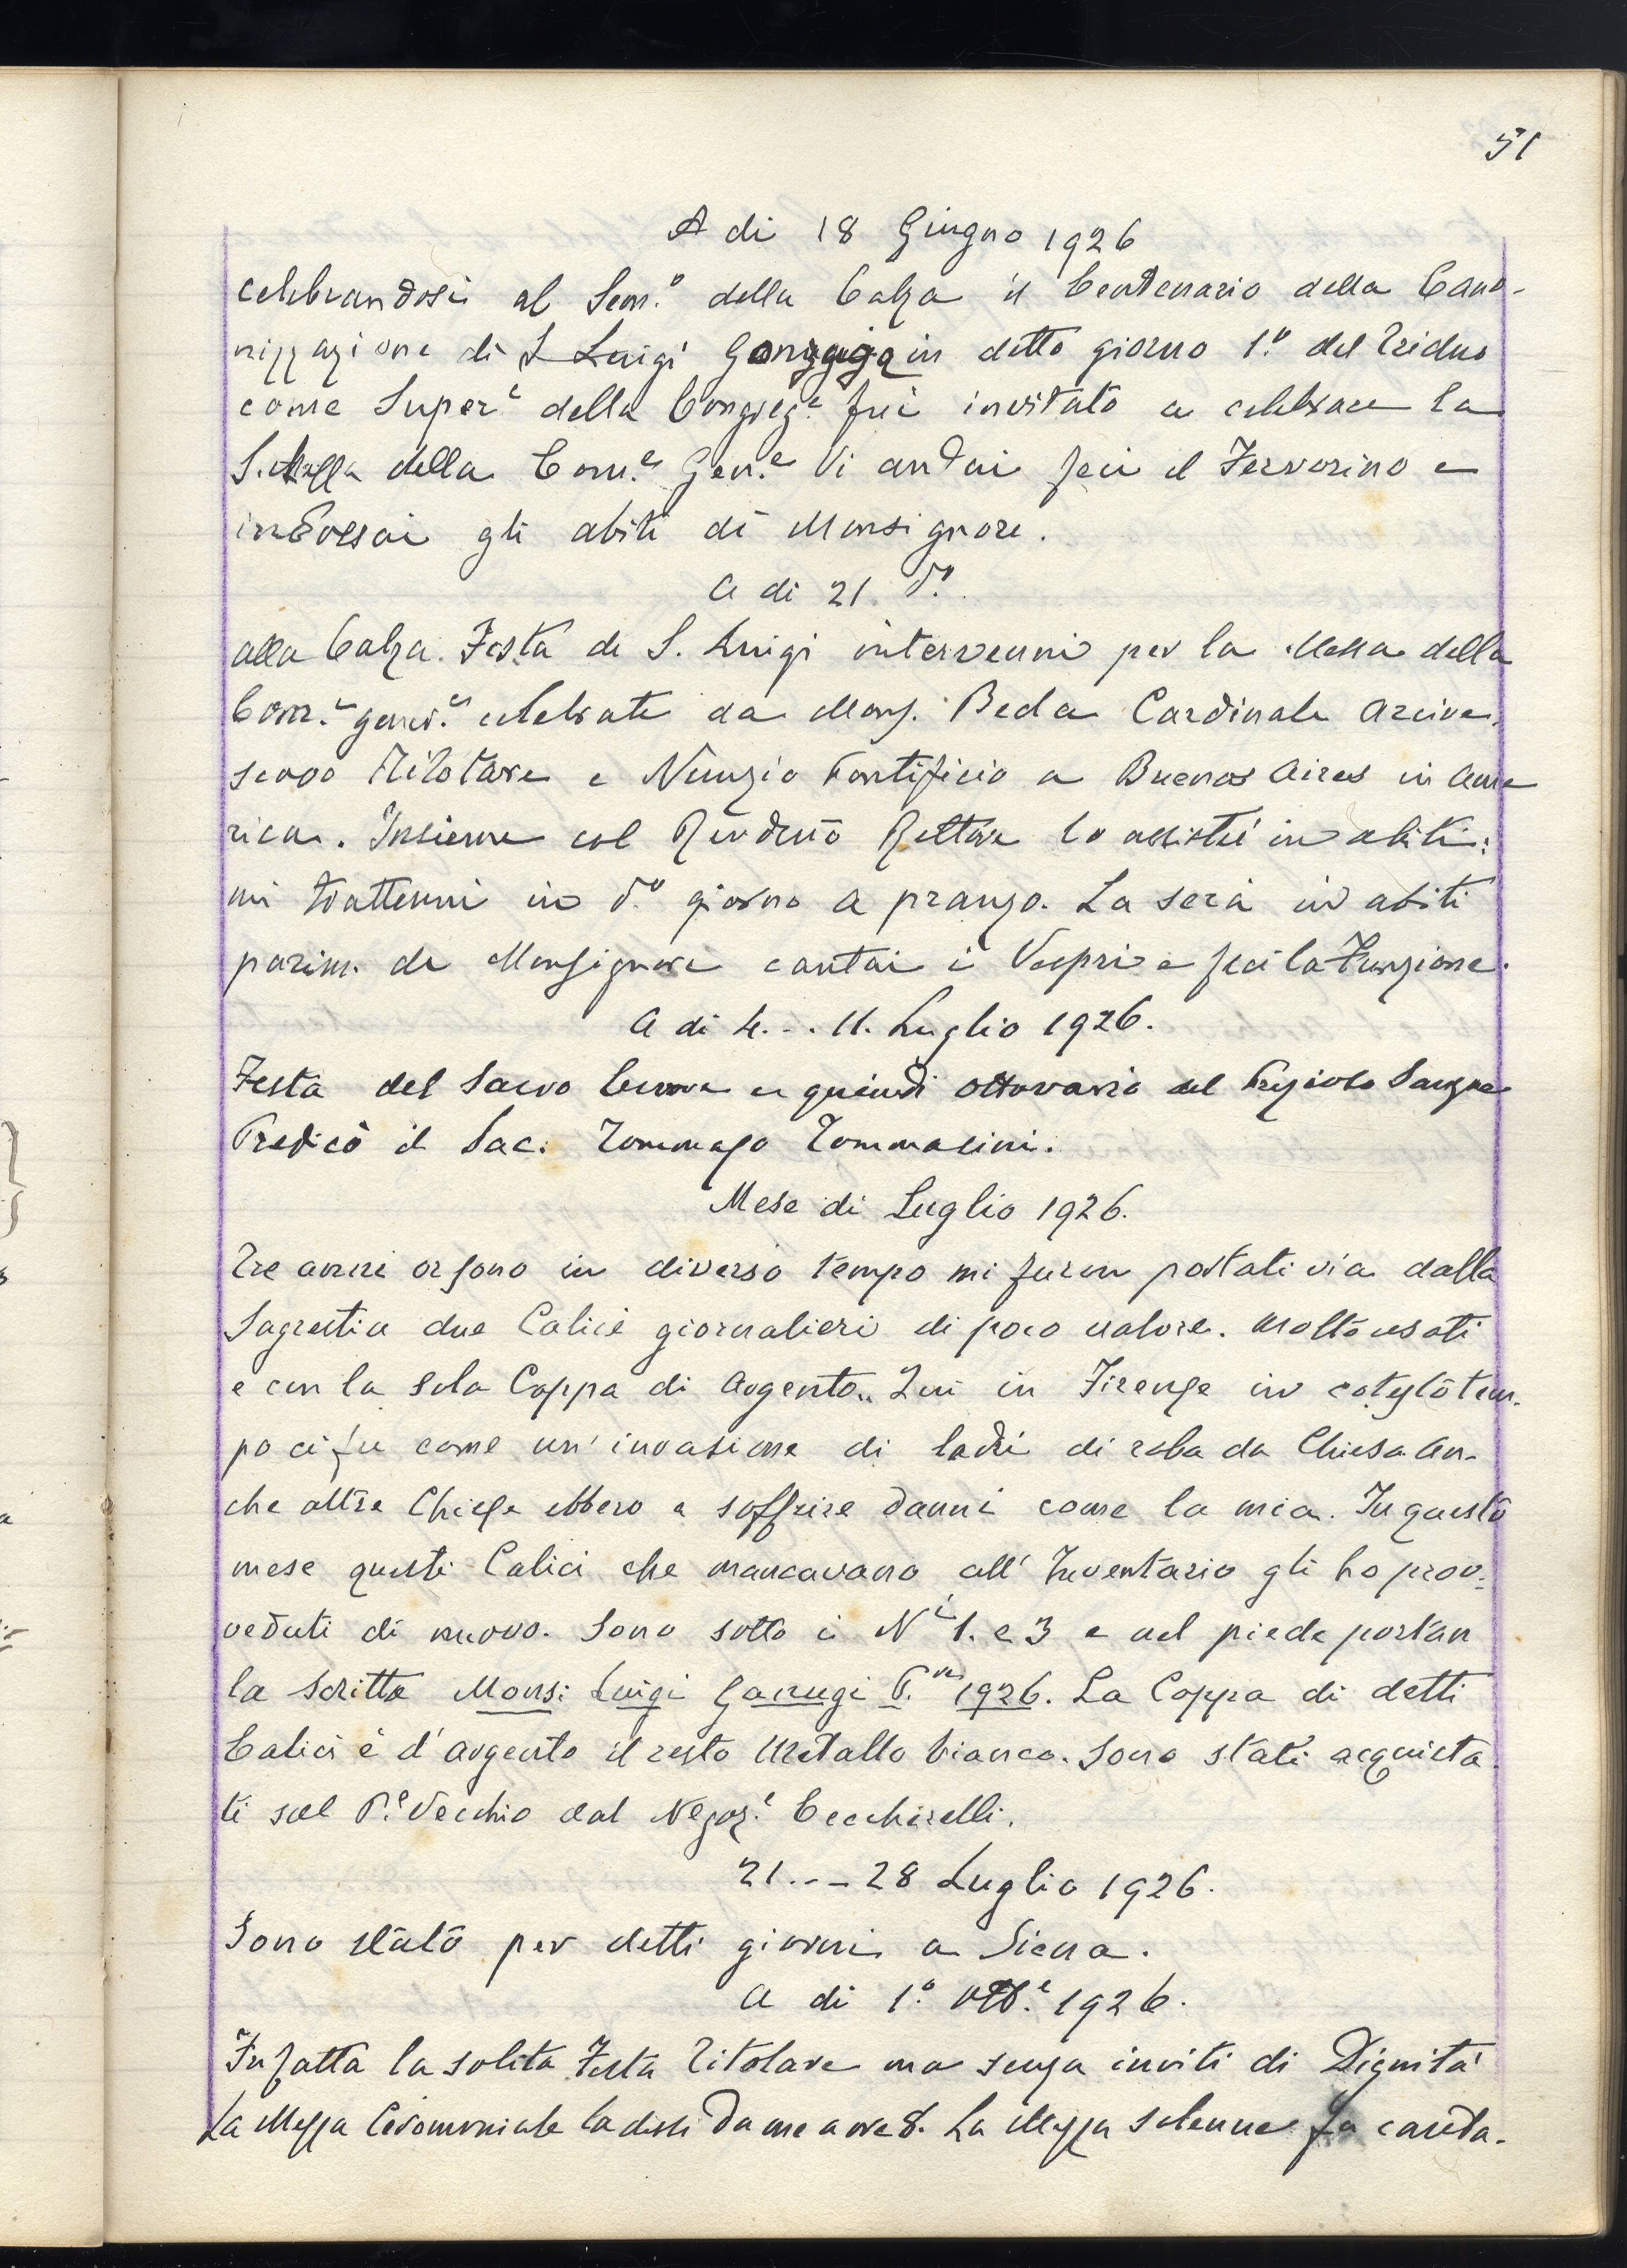 51
A di 18 Giugno 1926
celebrandosi al Sem.º della Calza il Centenario della Cano-
nizzazione di S Luigi Gonzaga in detto giorno 1.º del Triduo
come Super.e della Congreg.e fui invitato a celebrare la
S. Messa della Com.e Gen.e Vi andai feci il Fervorino e
indossai gli abiti di Monsignore.
A di 21. dº.
alla Calza. Festa di S. Luigi intervenni per la Messa della
Com.e gener.e celebrata da Mons. Beda Cardinale Arcive-
scovo Titolare e Nunzio Pontificio a Buenos Aires in Ame
rica. Insieme col Rev̄dm̄o Rettore lo assistei in abiti:
mi trattenni in dº. giorno a pranzo. La sera in abiti
parim. da Monsignore cantai i Vespri e feci la Funzione.
A di 4... 11. Luglio 1926.
Festa del Sacro Cuore e quindi ottavario del Prezioso Sangue
Predicò il Sac. Tommaso Tommasini.
Mese di Luglio 1926.
Tre anni or sono in diverso tempo mi furon portati via dalla
Sagrestia due Calici giornalieri di poco valore. Molto usati
e con la sola Coppa di Argento.. Qui in Firenze in cotesto tem-
po ci fu come un' invasione di ladri di roba da Chiesa. An-
che altre Chiese ebbero a soffrire danni come la mia. In questo
mese questi Calici che mancavano all' Inventario gli ho prov-
veduti di nuovo. Sono sotto i Ni 1. e 3 e nel piede portan
la scritta Mons: Luigi P. 1926. La Coppa di detti
Calici è d'argento il resto Metallo bianco. Sono stati acquista
ti sul P.e Vecchio dal Negoz.e
21... 28 Luglio 1926.
Sono stato per detti giorni a Siena.
A di 1.º Ott.e 1926.
Fu fatta la solita Festa Titolare ma senza inviti di Dignità
La Messa Ceromoniale la dissi da me a ore 8. La Messa solenne fu canta-